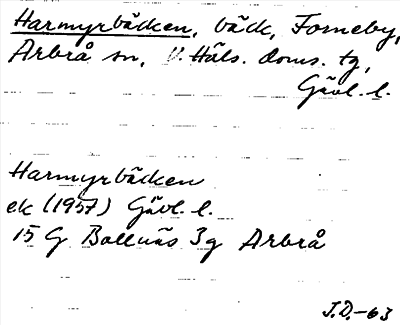 Harmyrbäcken, bäck, Forneby,
Arbrå sn, V. Häls. doms. tg,
Gävl. l.
Harmyrbäcken
ek (1957) Gävl. l.
15 G Bollnäs 3g Arbrå
J.D.-63